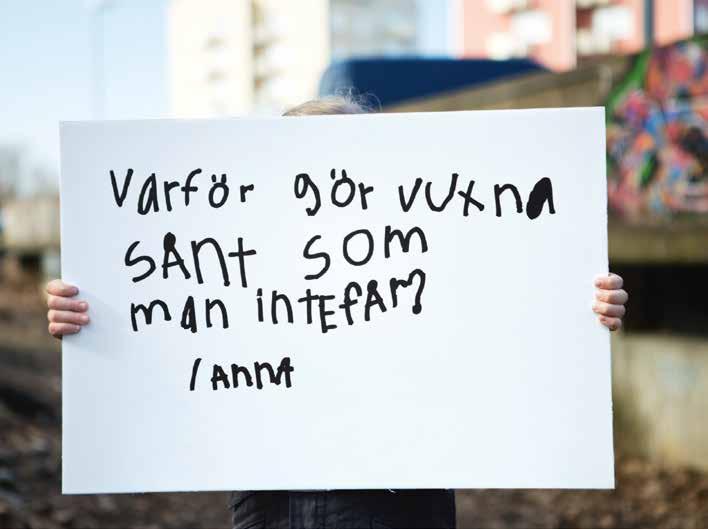 Varför gör vuxna
sÅnt som
man inteFÅR?
/ANNA